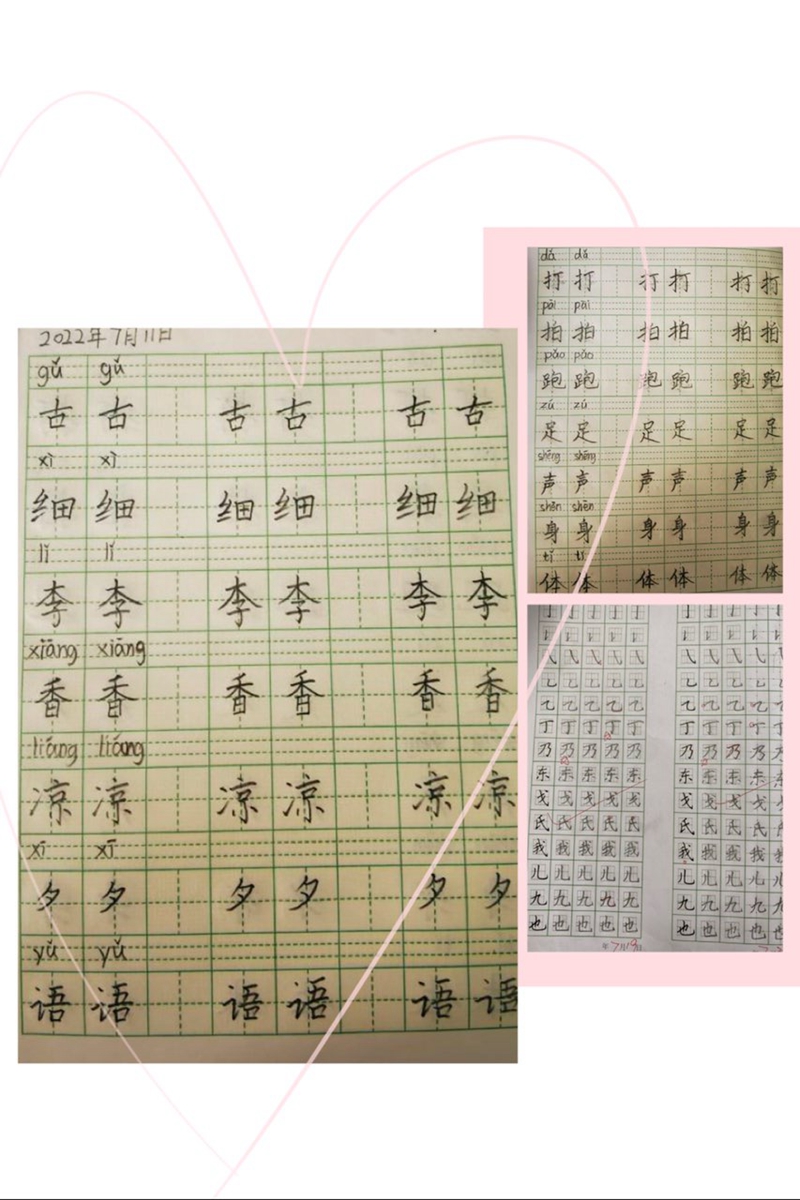 2022年7月11日
gǔ gǔ
古 古 古 古 古 古
xì xì
细 细 细 细 细 细
lǐ lǐ
李 李 李 李 李 李
xiāng xiāng
香 香 香 香 香 香
liáng liáng
凉 凉 凉 凉 凉 凉
xī xī
夕 夕 夕 夕 夕 夕
yǔ yǔ
语 语 语 语 语 语
dǎ dǎ
打 打 打 打 打 打
pāi pāi
拍 拍 拍 拍 拍 拍
pǎo pǎo
跑 跑 跑 跑 跑 跑
zú zú
足 足 足 足 足 足
shēng shēng
声 声 声 声 声 声
shēn shēn
身 身 身 身 身 身
tǐ tǐ
体 体 体 体 体 体
乙 乙 乙 乙 乙 乙 乙 乙 乙 乙
丁 丁 丁 丁 丁 丁 丁 丁 丁 丁
乃 乃 乃 乃 乃 乃 乃 乃 乃 乃
东 东 东 东 东 东 东 东 东 东
戈 戈 戈 戈 戈 戈 戈 戈 戈 戈
氏 氏 氏 氏 氏 氏 氏 氏 氏 氏
我 我 我 我 我 我 我 我 我 我
儿 儿 儿 儿 儿 儿 儿 儿 儿 儿
九 九 九 九 九 九 九 九 九 九
也 也 也 也 也 也 也 也 也 也